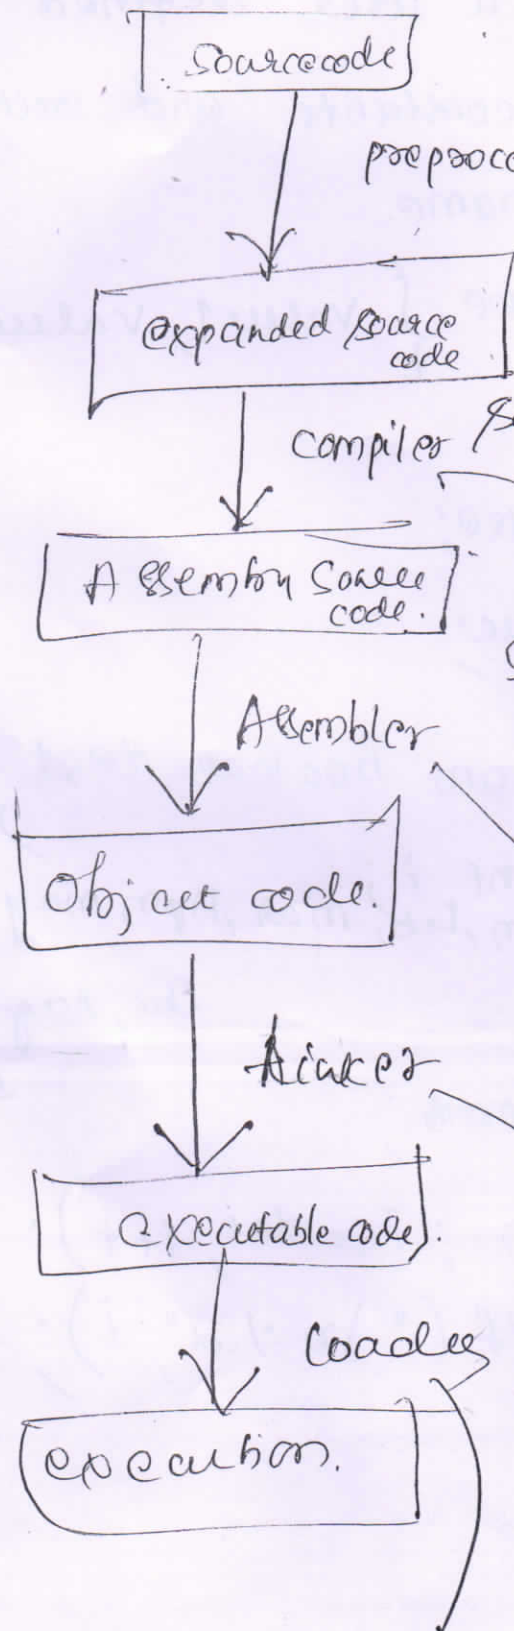 Sourcecode
preproce
expanded source
code
Compiler
Assembly Source
code.
Assembler
Object code.
Linker
executable code.
Loader
execution.